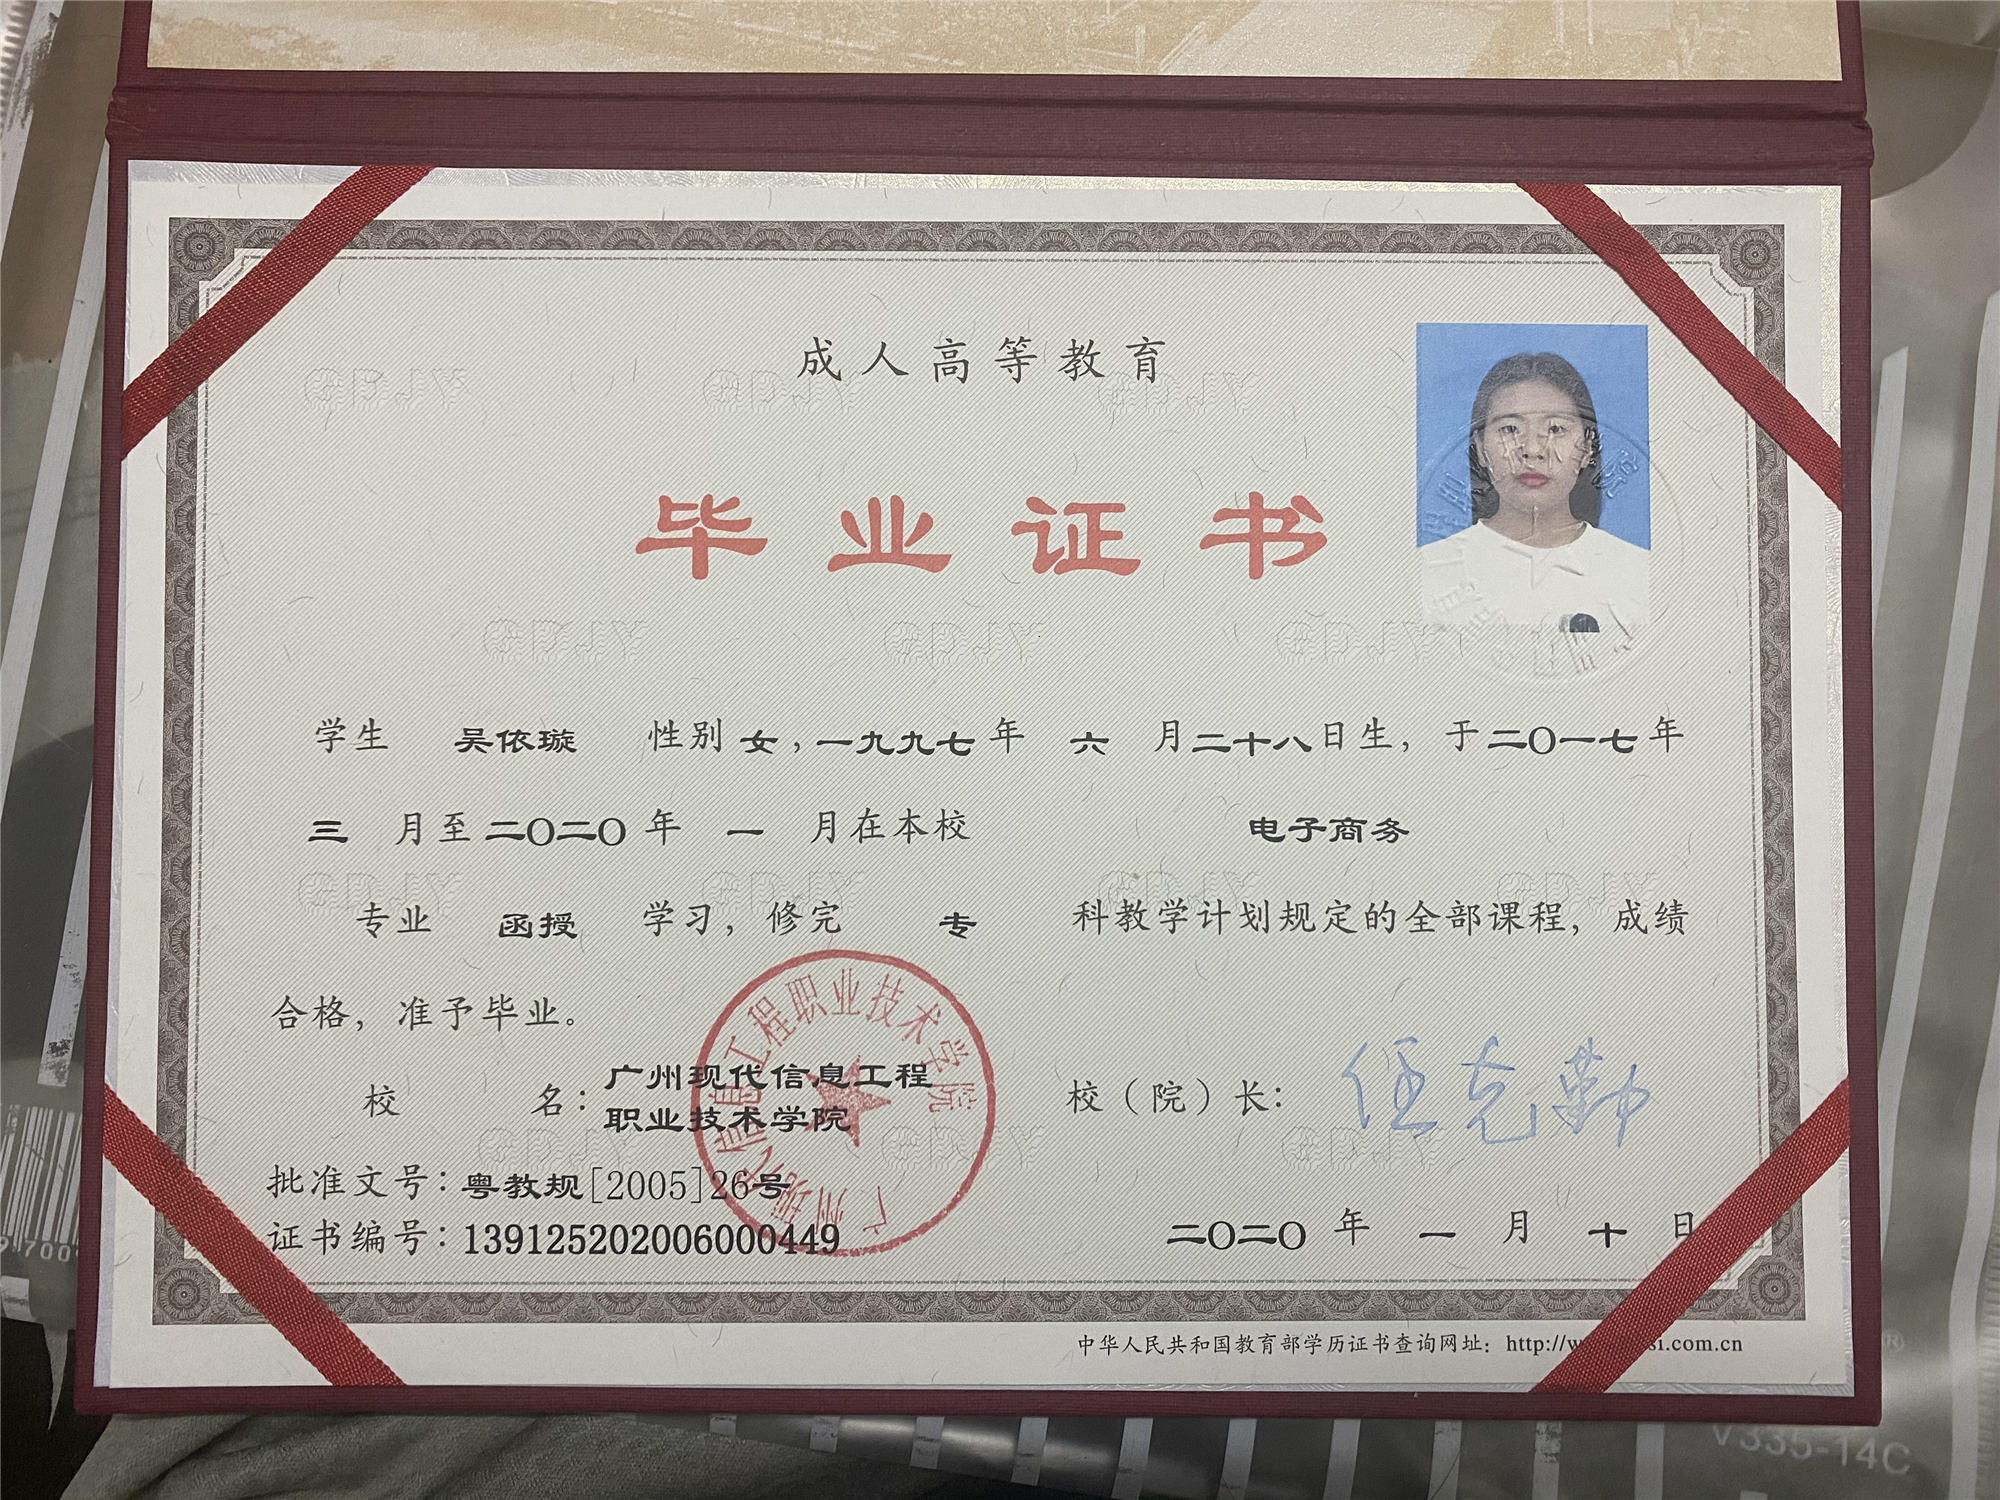 成人高等教育
毕业证书
学生 吴依璇 性别 女，一九九七年 六 月二十八日生，于二〇一七年
三 月至二〇二〇年 一 月在本校 电子商务
专业 函授 学习，修完 专 科教学计划规定的全部课程，成绩
合格，准予毕业。
校 名：广州现代信息工程
职业技术学院
校（院）长：任克勤
批准文号：粤教规[2005]26号
证书编号：139125202006000449
二〇二〇年 一 月 十 日
广州现代信息工程职业技术学院
中华人民共和国教育部学历证书查询网址：http://w si.com.cn
GDJY GDJY GDJY
GDJY GDJY GDJY
GDJY GDJY GDJY GDJY
GDJY GDJY GDJY
V335-14C